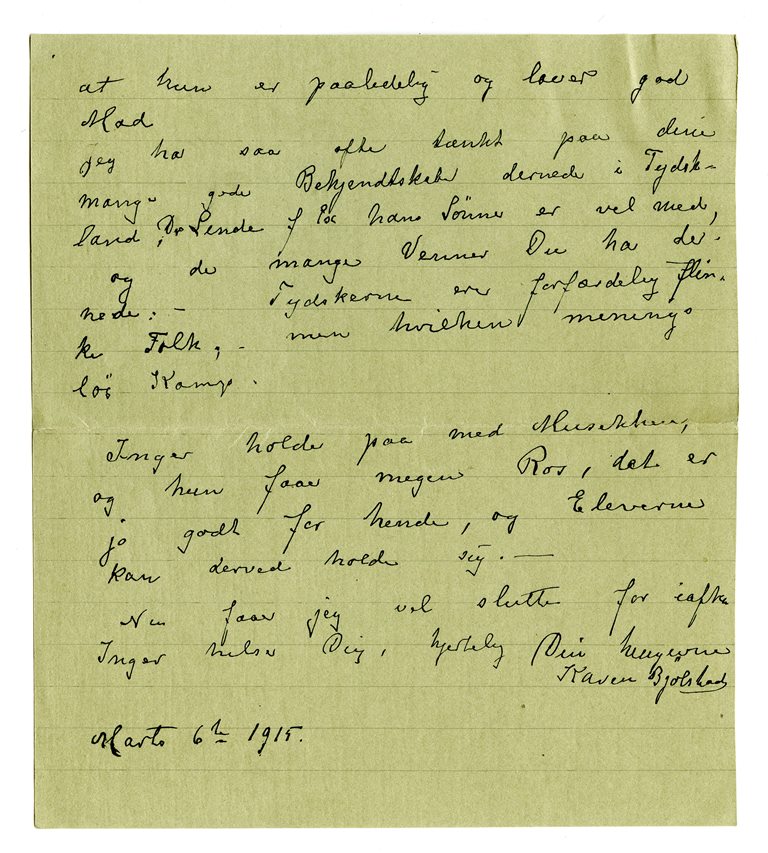 at hun er paalidelig og laver god
Mad
jeg ha saa ofte tænkt paa dine
mange gode Bekjendtskabe dernede i Tydsk-
land, Dr Linde f Ex hans Sönner er vel med,
og de mange Venner Du ha der-
nede: - Tydskerne ere forfærdelig flin-
ke Folk, - men hvilken menings
lös Kamp.
Inger holde paa med Musikken,
og hun faar megen Ros, det er
jo godt for hende, og Eleverne
kan derved holde sig. —
Nu faar jeg vel slutte for iaften
Inger hilse Dig, hjertelig Din hengivne
Karen Bjölstad
Marts 6te 1915.